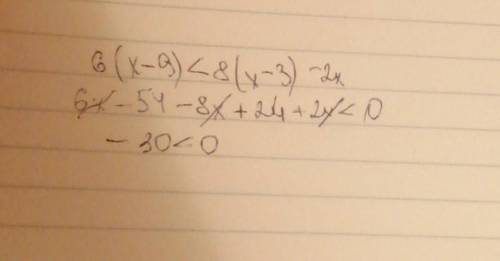 6(x-9)<8(x-3)-2x
6x-54-8x+24+2x<0
-30<0